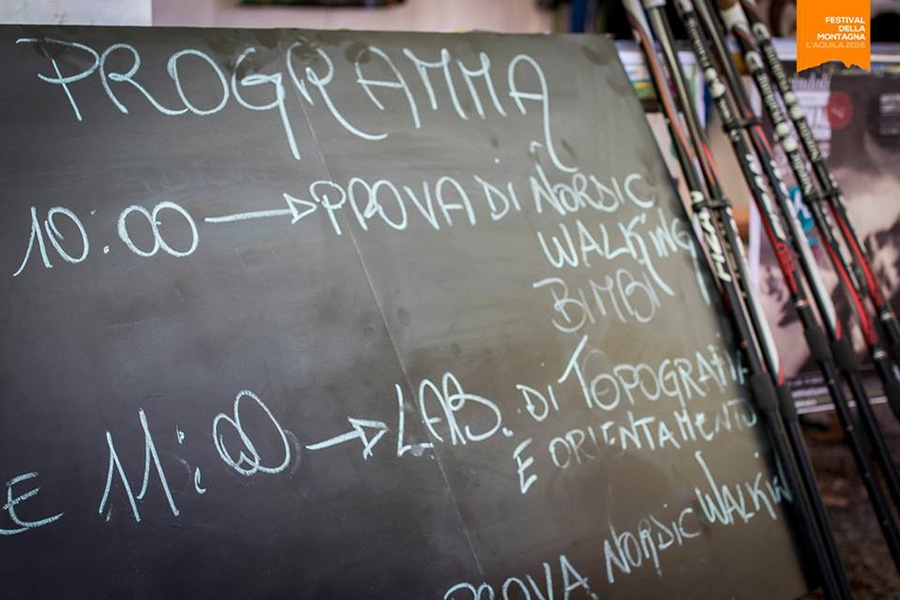 FESTIVAL
DELLA
MONTAGNA
L'AQUILA 2016
PROGRAMMA
10:00 → PROVA DI NORDIC
WALKING
BIMBI
E 11:00 → LAB. DI TOPOGRAFIA
E ORIENTAMENTO
PROVA NORDIC WALKIN